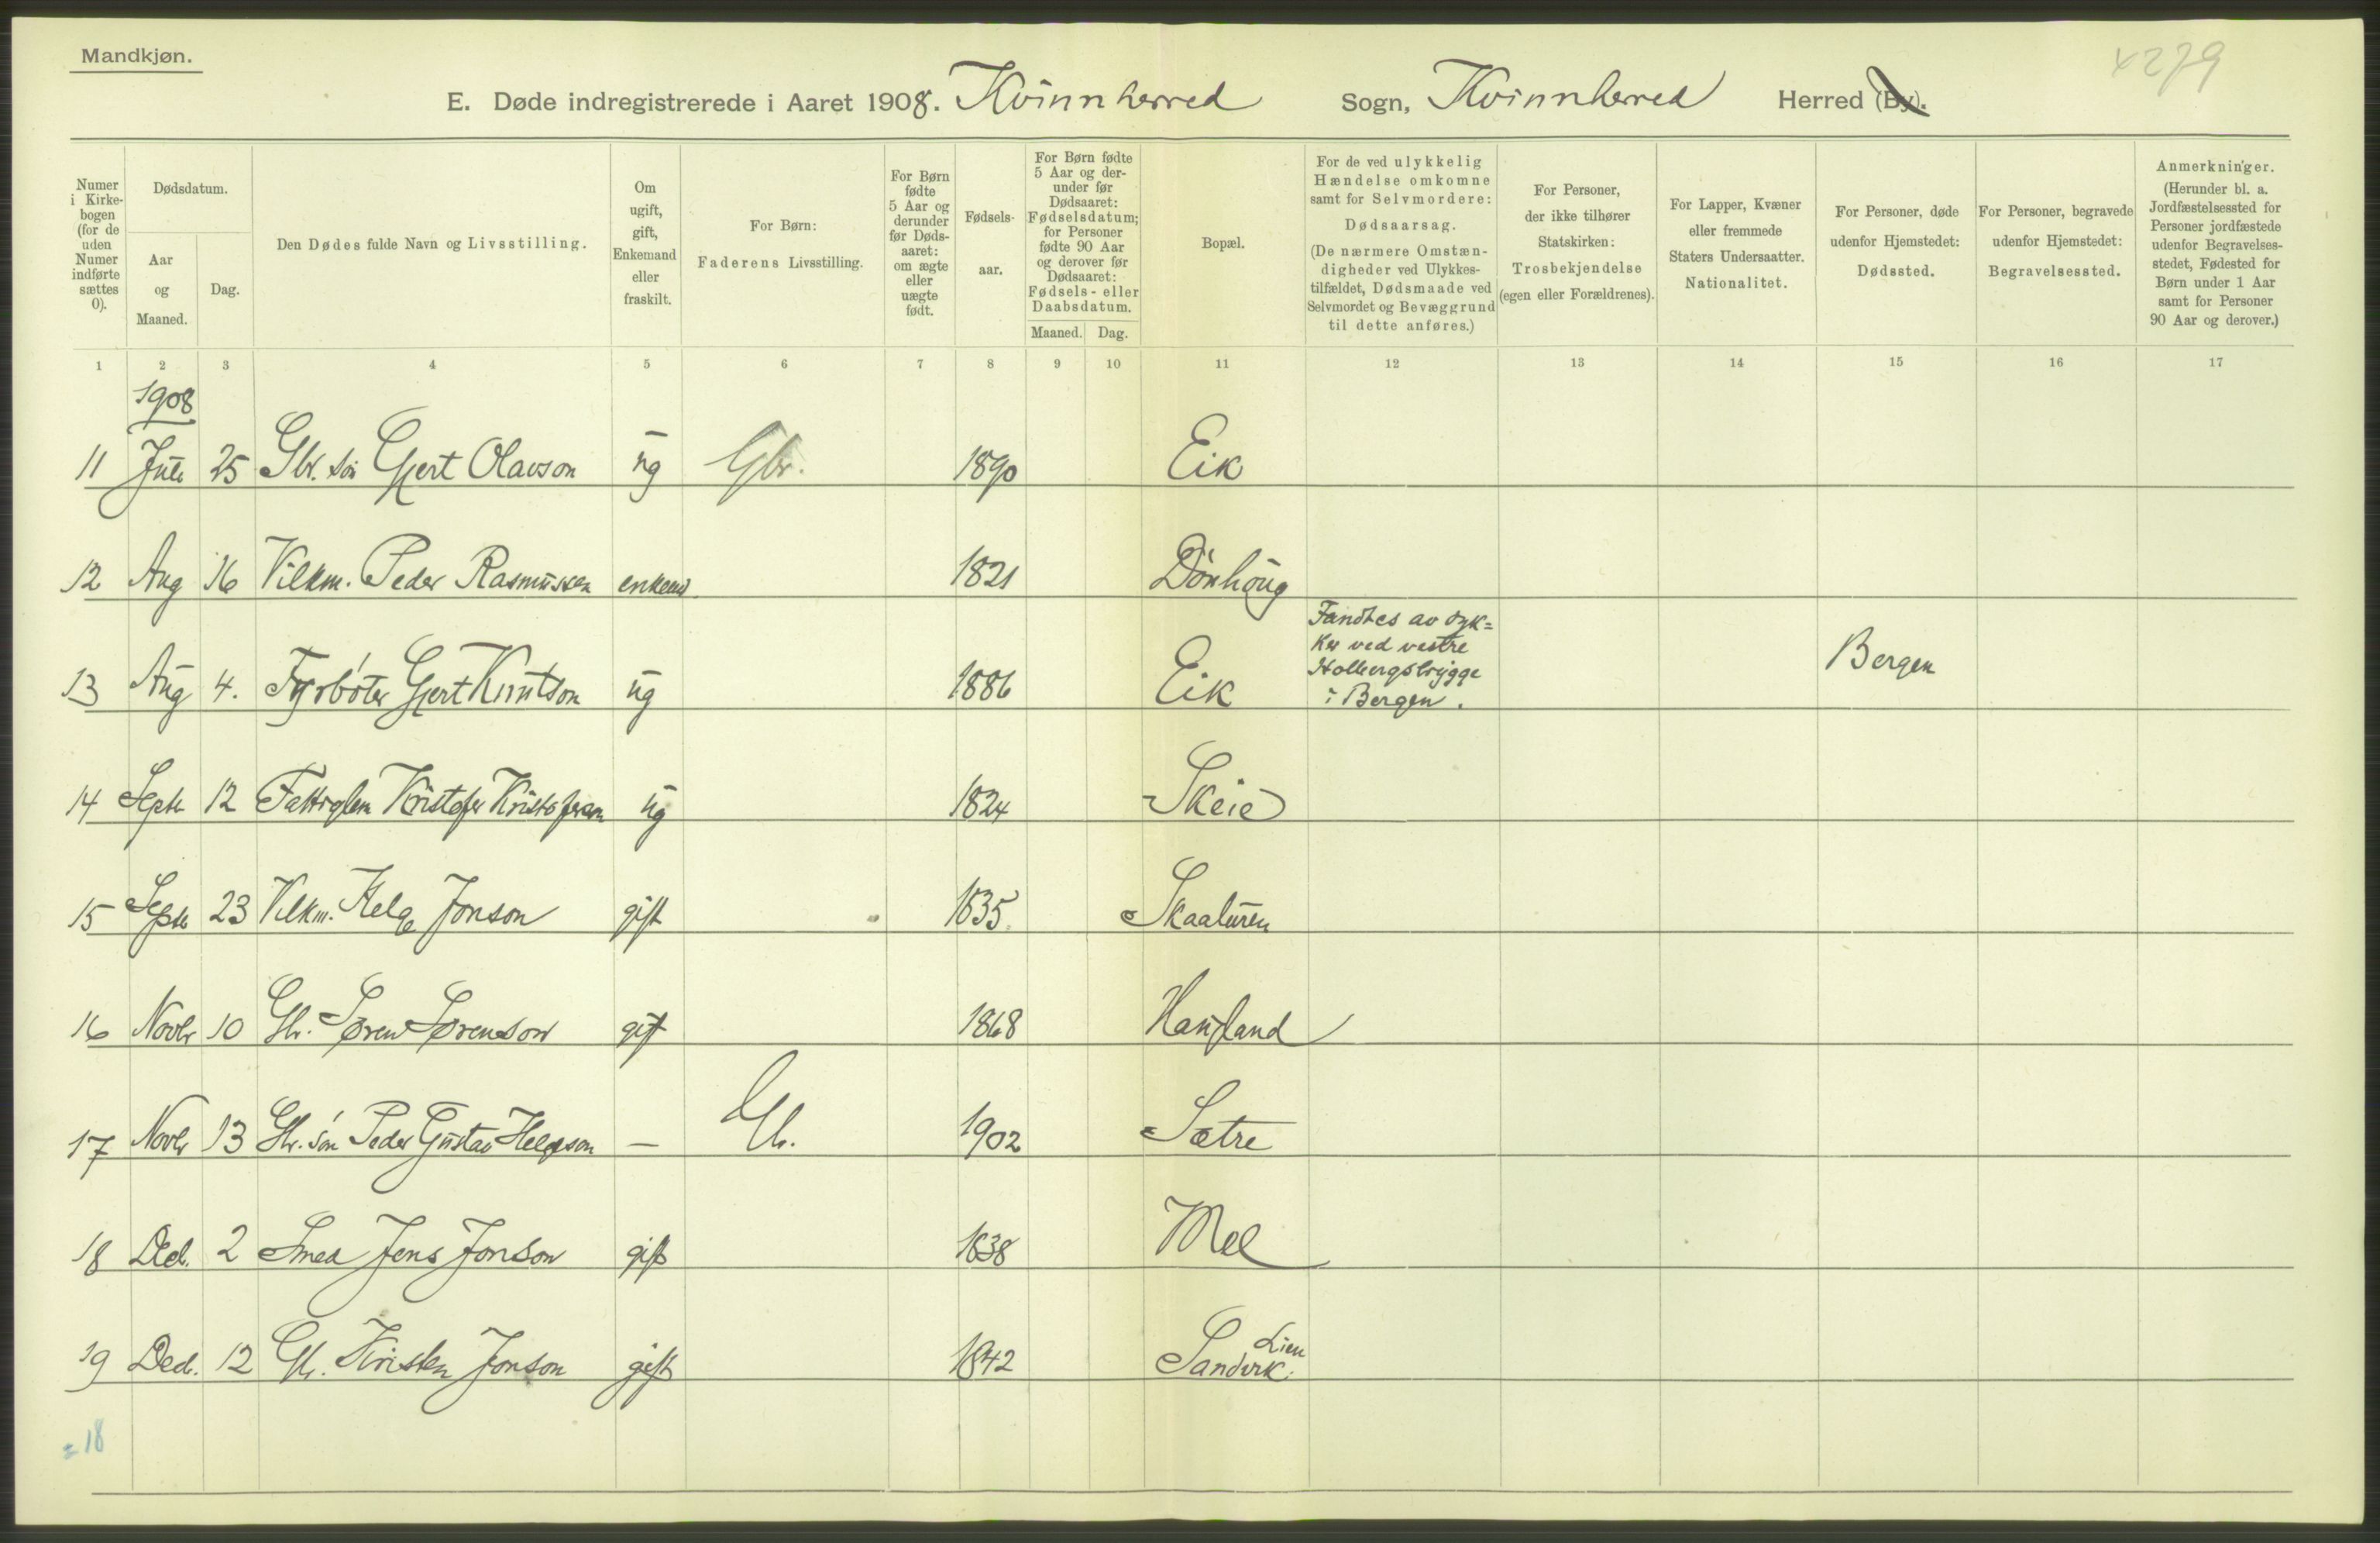 Mandkjøn.
×279
E. Døde indregistrerede i Aaret 1908. Kvinnherred Sogn, Kvinnherred Herred (By).
Numer i Kirkebogen (for de uden Numer indførte sættes 0).
Dødsdatum.
Aar og Maaned.
Dag.
Den Dødes fulde Navn og Livsstilling.
Om ugift, gift, Enkemand eller fraskilt.
For Børn: Faderens Livsstilling.
For Børn fødte 5 Aar og derunder før Dødsaaret: om ægte eller uægte født.
Fødselsaar.
For Børn fødte 5 Aar og derunder før Dødsaaret: Fødselsdatum; for Personer fødte 90 Aar og derover før Dødsaaret: Fødsels- eller Daabsdatum.
Maaned. Dag.
Bopæl.
For de ved ulykkelig Hændelse omkomne samt for Selvmordere: Dødsaarsag. (De nærmere Omstændigheder ved Ulykkestilfældet, Dødsmaade ved Selvmordet og Bevæggrund til dette anføres.)
For Personer, der ikke tilhører Statskirken: Trosbekjendelse (egen eller Forældrenes).
For Lapper, Kvæner eller fremmede Staters Undersaatter. Nationalitet.
For Personer, døde udenfor Hjemstedet: Dødssted.
For Personer, begravede udenfor Hjemstedet: Begravelsessted.
Anmerkninger. (Herunder bl. a. Jordfæstelsessted for Personer jordfæstede udenfor Begravelsesstedet, Fødested for Børn under 1 Aar samt for Personer 90 Aar og derover.)
1 2 3 4 5 6 7 8 9 10 11 12 13 14 15 16 17
1908
11 Juli 25 Gbr. søn Gjert Olavson ug Gbr. 1890 Eik
12 Aug 16 Vilkm. Peder Rasmussen enkem 1821 Dönhaug
13 Aug 4. Fyrbøter Gjert Knutson ug 1886 Eik Fandtes av dykker ved vestre Holbergsbrygge i Bergen. Bergen
14 Septr 12 Fattiglem Kristofer Kristoferson ug 1824 Skeie
15 Septr 23 Vilkm. Helge Jonson gift 1835 Skaaluren
16 Novbr 10 Gbr. Søren Sørenson gift 1868 Haugland
17 Novbr 13 Gbr. søn Peder Gustav Helgeson — Gbr. 1902 Sætre
18 Decb. 2 Smed Jens Jonson gift 1838 Mel
19 Decb. 12 Gbr. Kristen Jonson gift 1842 Sandvik Lien
= 18